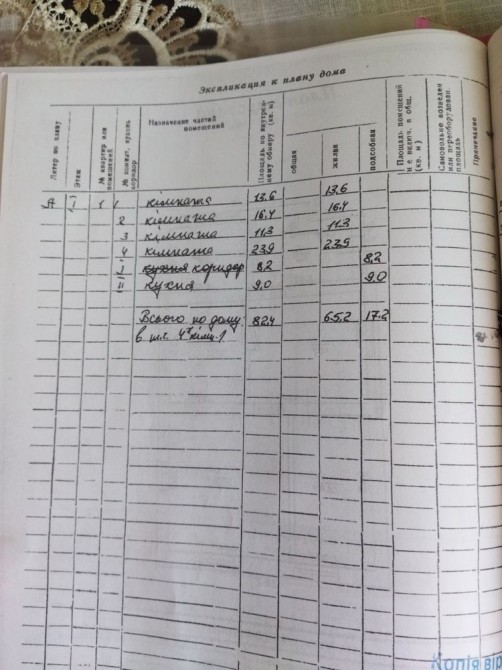 Экспликация к плану дома
Литер по плану
Этаж
№ квартир или помещения
№ комнат, кухонь коридор
Назначение частей помещений
Площадь по внутреннему обмеру (кв. м)
общая
жилая
подсобная
Площадь помещений не включ. в общ. (кв. м)
Самовольно возведен или переоборудован. площадь
Примечание
А 1 1 1 кімната 13.6 13.6
2 кімната 16.4 16.4
3 кімната 11.3 11.3
4 кімната 23.9 23.9
I кухня коридор 8.2 8.2
II Кухня 9.0 9.0
Всього по дому 82.4 65.2 17.2
в т.ч.